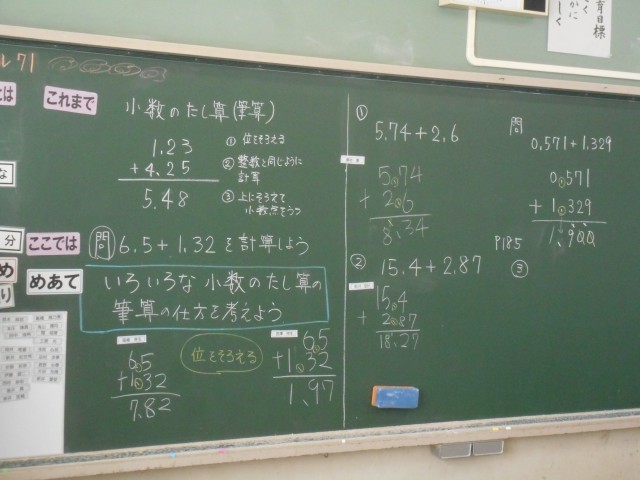 これまで
小数のたし算(筆算)
1.23
+4.25
5.48
① 位をそろえる
② 整数と同じように
計算
③ 上にそろえて
小数点をうつ
ここでは
問 6.5+1.32を計算しよう
めあて
いろいろな小数のたし算の
筆算の仕方を考えよう
6.5
+1.32
7.82
位をそろえる
6.5
+1.32
1.97
①
5.74+2.6
5.74
+ 2.6
8.34
② 15.4+2.87
15.4
+ 2.87
18.27
問
0.571+1.329
0.571
+ 1.329
1.900
P185
③